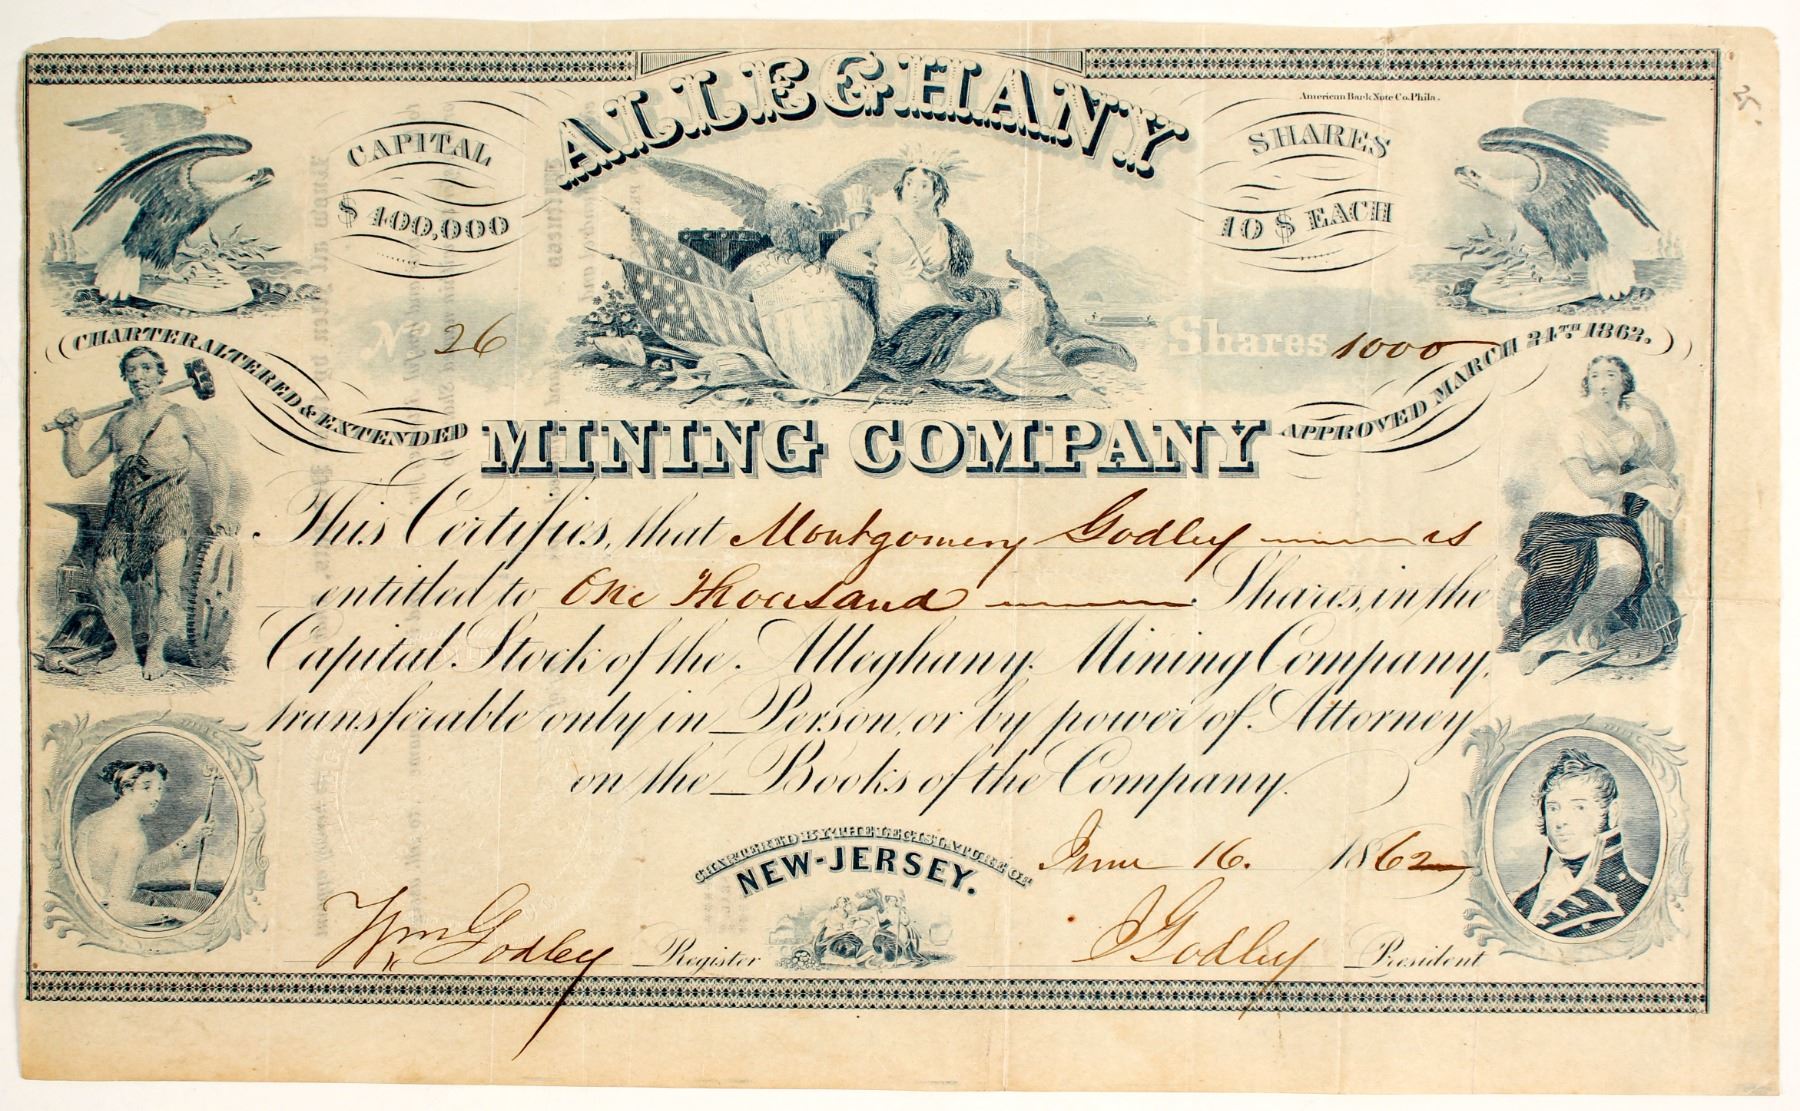 ALLEGHANY
American Bank Note Co. Phila.
CAPITAL
$ 100,000
SHARES
10 $ EACH
No 26
Shares 1000
CHARTER ALTERED & EXTENDED
APPROVED MARCH 24TH 1862.
MINING COMPANY
This Certifies, that Montgomery Godley is
entitled to One Thousand Shares, in the
Capital Stock of the Alleghany Mining Company,
transferable only in Person, or by power of Attorney
on the Books of the Company.
CHARTERED BY THE LEGISLATURE OF
NEW-JERSEY.
June 16. 1862
Wm Godley Register
J Godley President